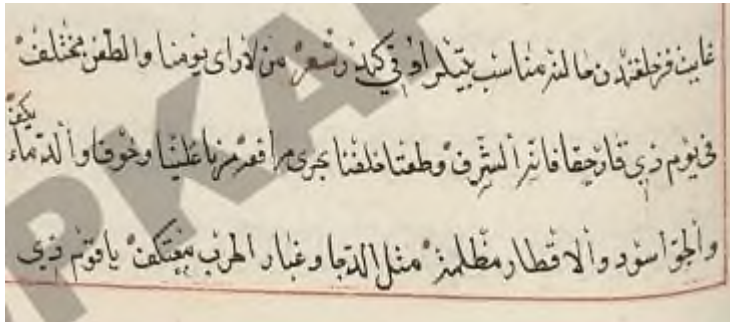 غايت فرخلفندن حالنه مناسب بيتلر اوقي كه در شعر من لا راى يومنا والطعن مختلف
فى يوم ذي قار حقا فاته الشرف وطعنا خلفنا بجرى مراقعه مزنا علينا وخوفا والدماء يكف
والجو اسود والاقطار مظلمة مثل الدجا وغبار الحرب معتكف يا قوم ذي